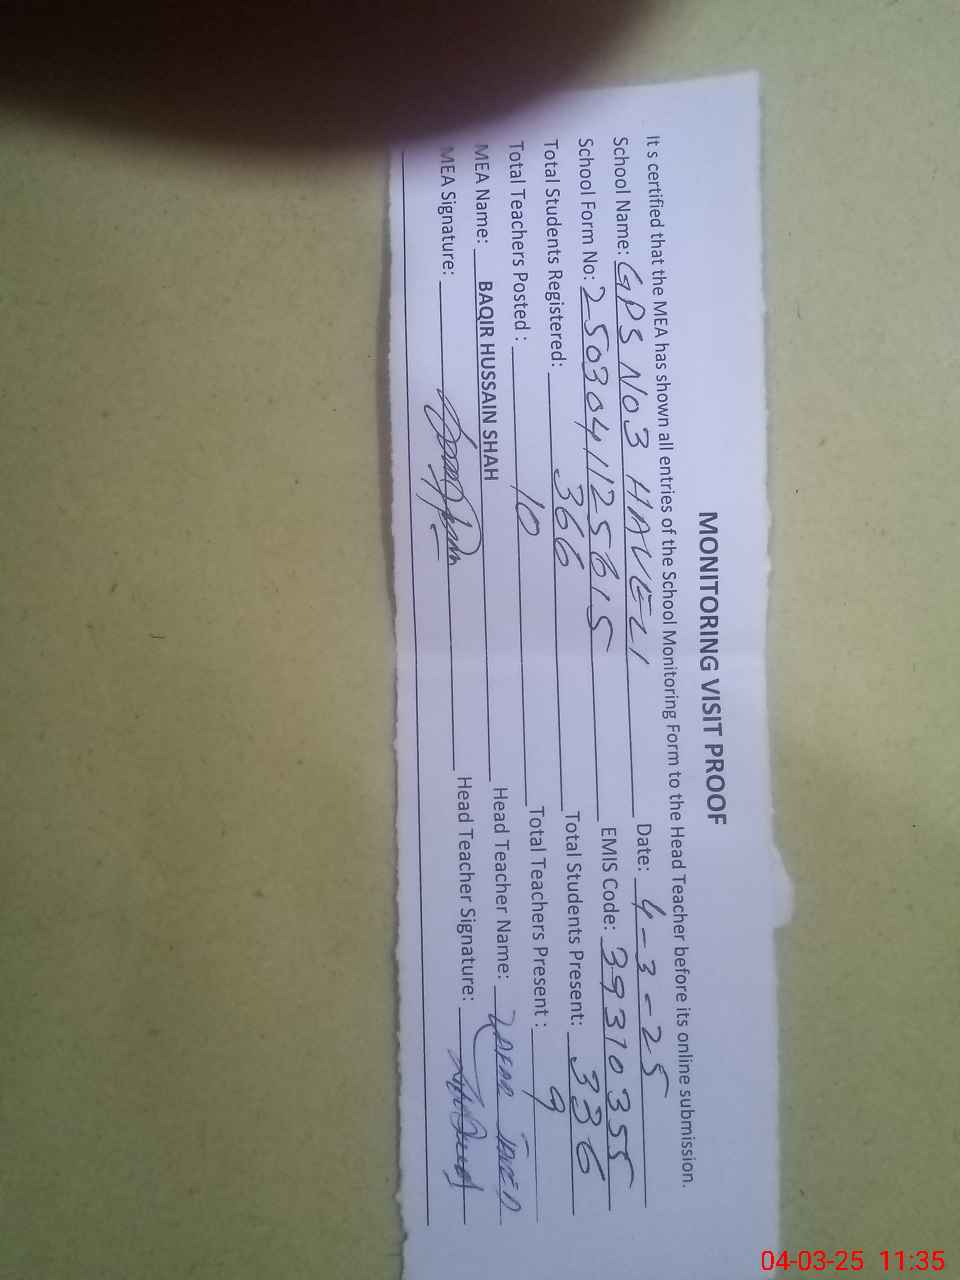 MONITORING VISIT PROOF
It s certified that the MEA has shown all entries of the School Monitoring Form to the Head Teacher before its online submission.
School Name: GPS NO3 HAVELI Date: 4-3-25
School Form No: 2503041125615 EMIS Code: 39310355
Total Students Registered: 366 Total Students Present: 336
Total Teachers Posted : 10 Total Teachers Present : 9
MEA Name: BAQIR HUSSAIN SHAH Head Teacher Name: ZAFAR
MEA Signature: Head Teacher Signature:
04-03-25 11:35